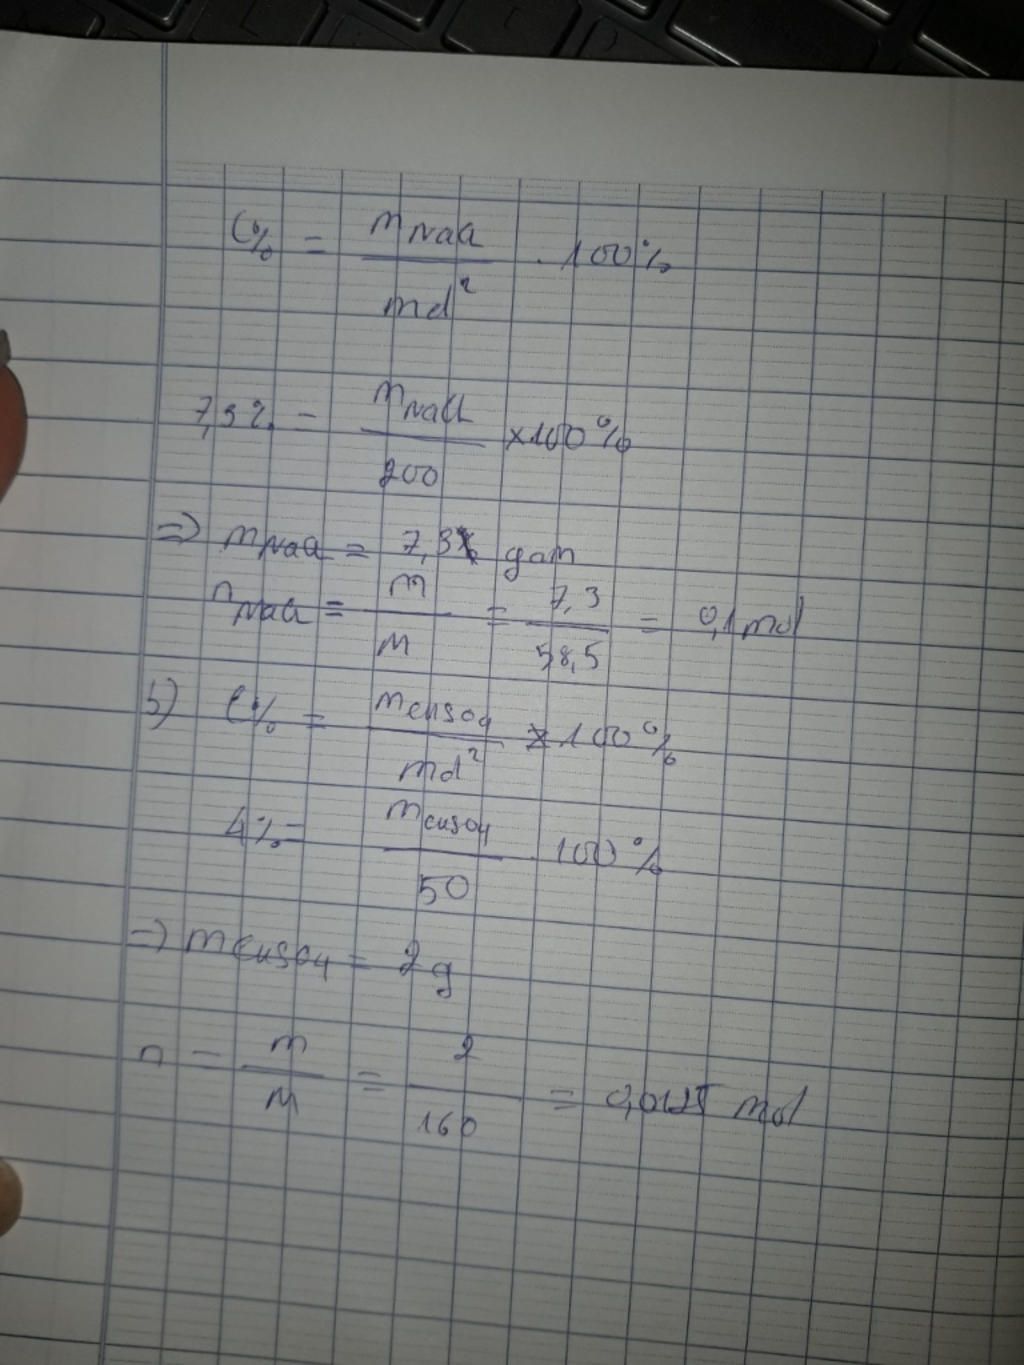 C% = mNaCl / md² . 100%
7,3% = mNaCl / 200 × 100%
=> mNaCl = 7,3 gam
nNaCl = m / M = 7,3 / 58,5 = 0,1 mol
b) C% = mCuSO4 / md² × 100%
4% = mCuSO4 / 50 . 100%
=> mCuSO4 = 2g
n = m / M = 2 / 160 = 0,0125 mol